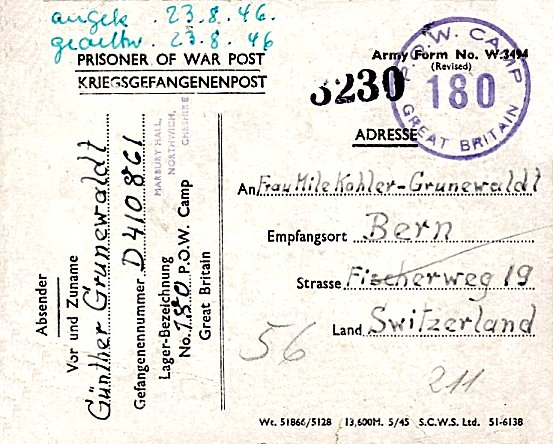 angek. 23.8.46.
geantw. 23.8.46
PRISONER OF WAR POST
KRIEGSGEFANGENENPOST
Army Form No. W.3494
(Revised)
3230
P.O.W. CAMP
180
GREAT BRITAIN
ADRESSE
An Frau Mile Kohler-Grunewaldt
Empfangsort Bern
Strasse Fischerweg 19
Land Switzerland
56
211
Wt. 51866/5128 13,600M. 5/45 S.C.W.S. Ltd. 51-6138
Absender
Vor und Zuname
Günther Grunewaldt
Gefangenennummer D410861
Lager-Bezeichnung
No. 180 P.O.W. Camp
Great Britain
MARBURY HALL,
NORTHWICH,
CHESHIRE